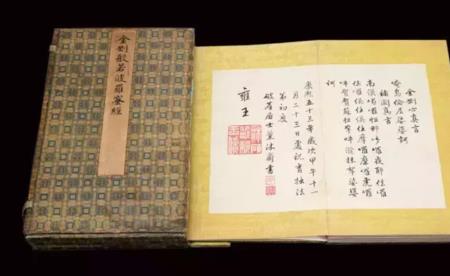 金剛般若波羅蜜經
金剛心真言
唵烏倫尼娑婆訶
補闕真言
南謨喝囉怛那哆囉夜耶佉囉
佉囉俱住俱住摩囉摩囉虎囉
吽賀賀蘇怛拏吽潑抹拏娑婆
訶
康熙五十三年歲次甲午十一
月二十三日虔祝
初度
居士薰沐肅書
雍王